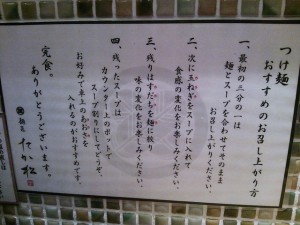 つけ麺
おすすめのお召し上がり方
一、最初の三分の一は
麺とスープを合わせてそのまま
お召し上がりください。
二、次に玉ねぎをスープに入れて
食感の変化をお楽しみください。
三、残りはすだちを麺に絞り
味の変化をお楽しみください。
四、残ったスープは
カウンター上のポットで
スープ割りにしてどうぞ。
お好みで卓上のあおさを
入れるのがおすすめです。
完食。
ありがとうございます。
麺屋 たか松